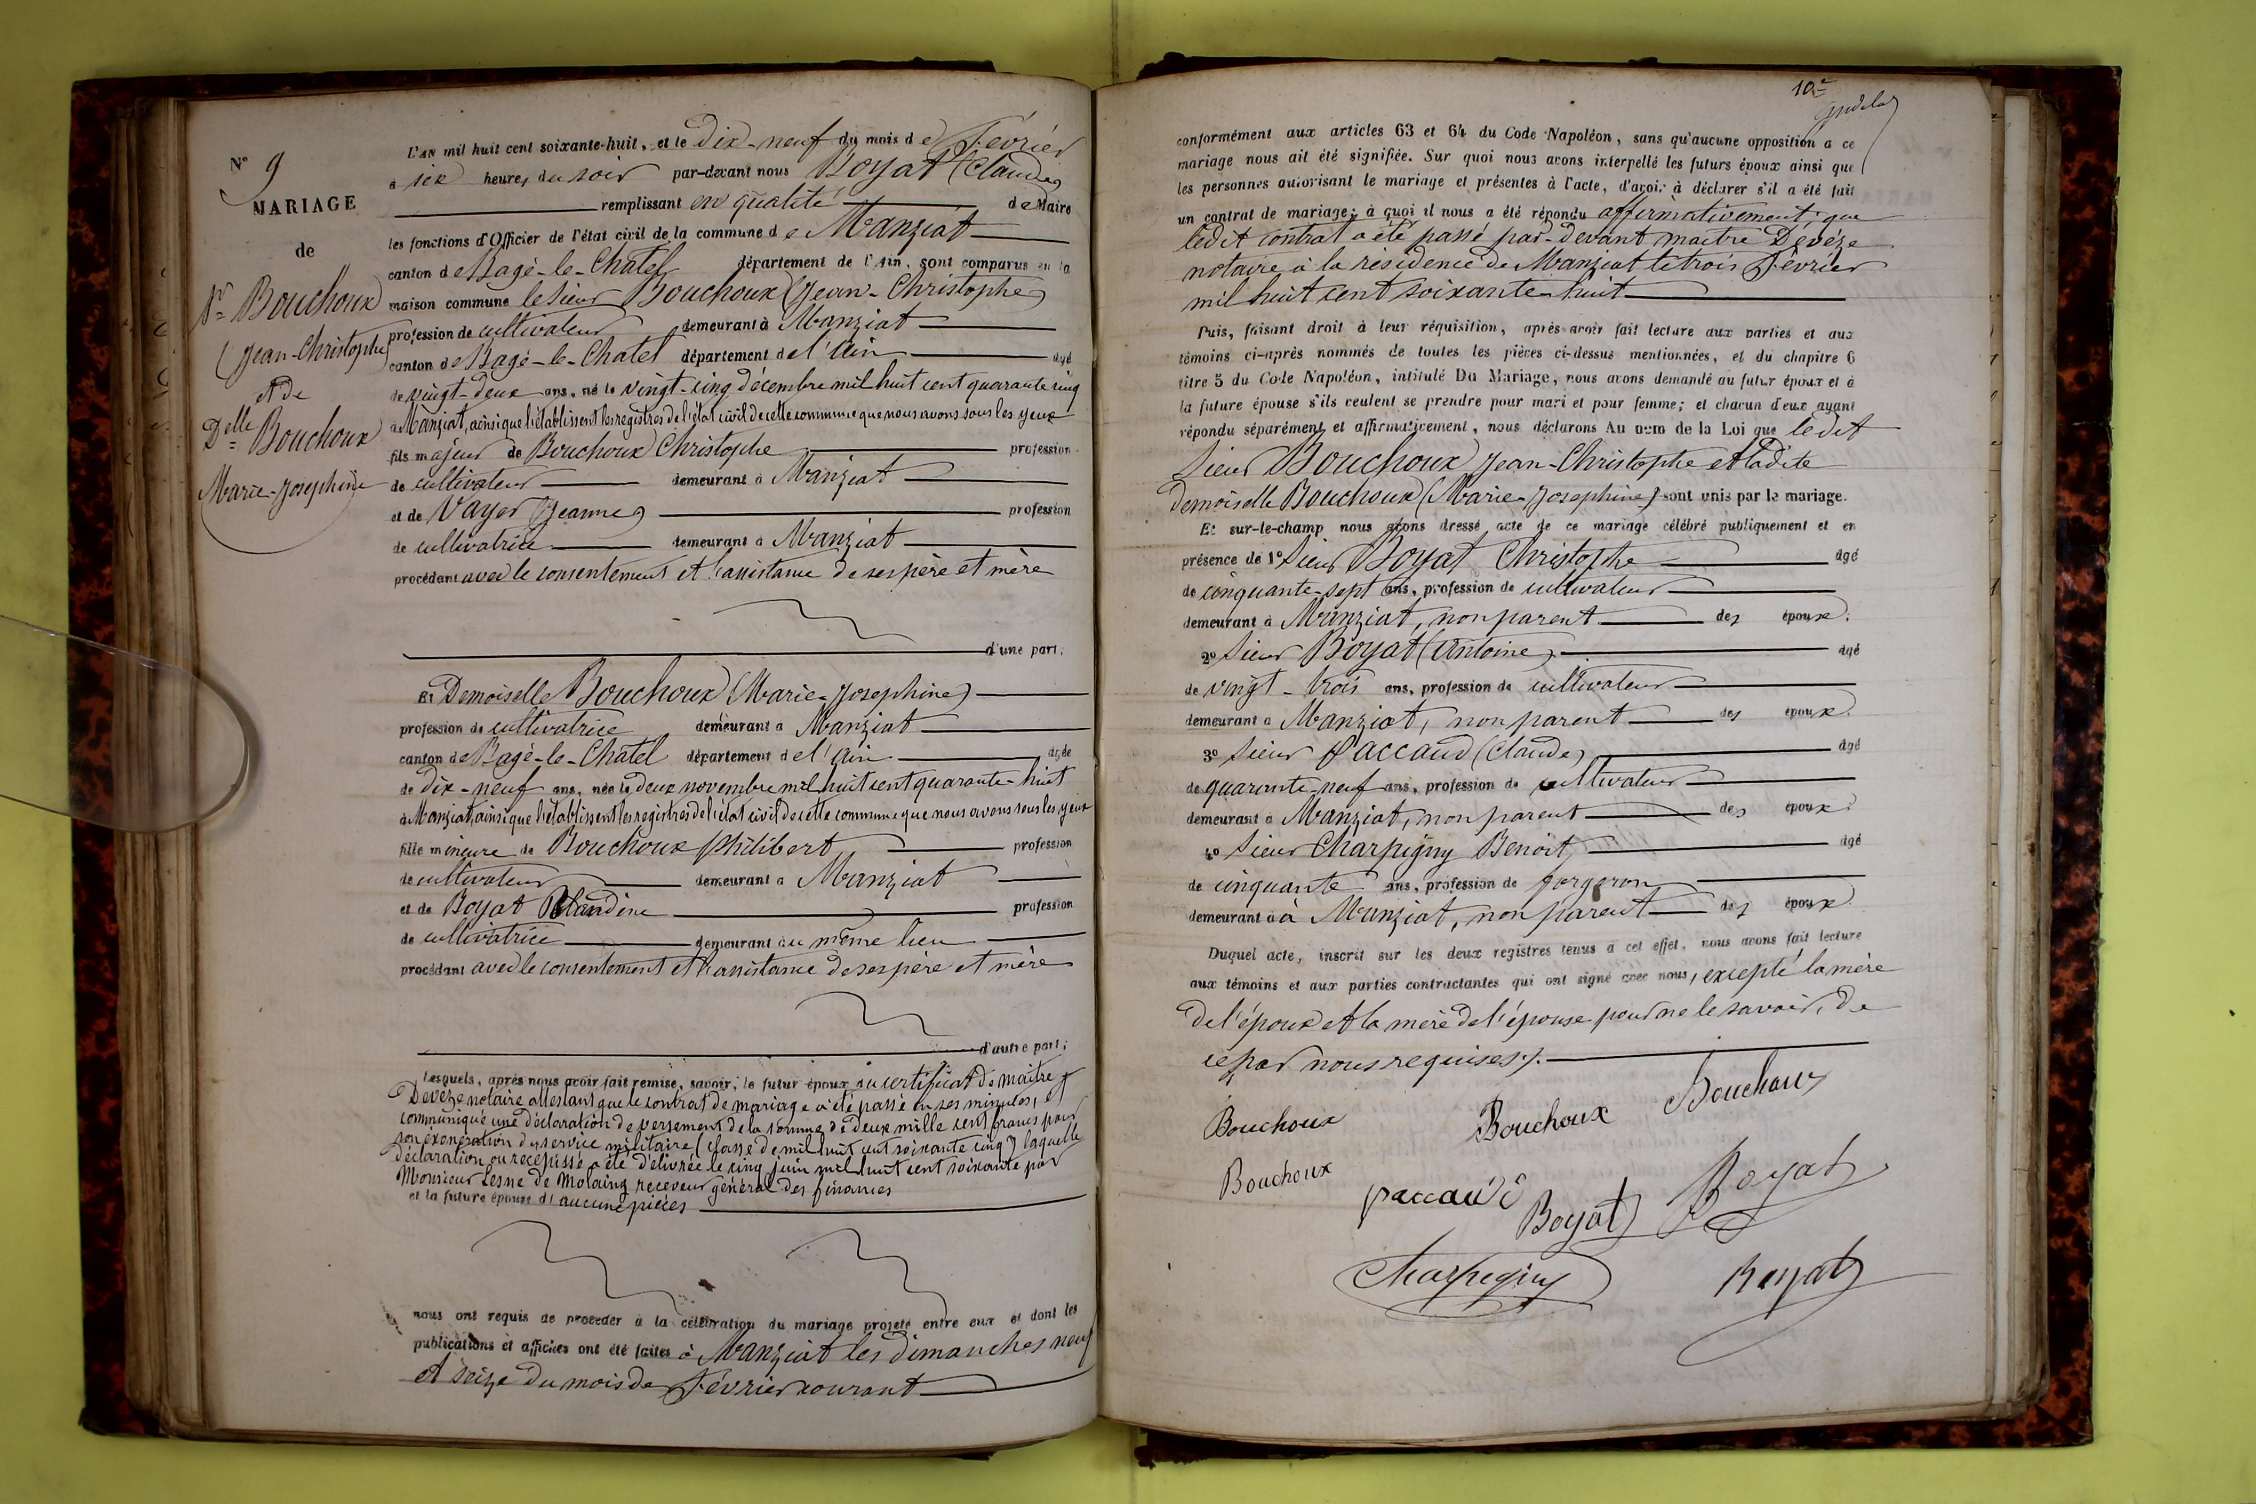 N° 9
MARIAGE
de
Sr Bouchoux
(Jean-Christophe)
et de
Delle Bouchoux
Marie-Josephine
L'AN mil huit cent soixante-huit, et le dix-neuf du mois de Février
à six heures du soir par-devant nous Boyat (Claude)
remplissant en qualité de Maire
les fonctions d'Officier de l'état civil de la commune de Manziat
canton de Bagé-le-Chatel département de l'Ain, sont comparus en la
maison commune le sieur Bouchoux (Jean-Christophe)
profession de cultivateur demeurant à Manziat
canton de Bagé-le-Chatel département de l'Ain âgé
de vingt-deux ans, né le vingt-cinq décembre mil huit cent quarante cinq
à Manziat, ainsi que l'établissent les registres de l'état civil de cette commune que nous avons sous les yeux
fils majeur de Bouchoux Christophe profession
de cultivateur demeurant à Manziat
et de Vayer (Jeanne) profession
de cultivatrice demeurant à Manziat
procédant avec le consentement et l'assistance de ses père et mère
d'une part;
Et Demoiselle Bouchoux (Marie-Josephine)
profession de cultivatrice demeurant à Manziat
canton de Bagé-le-Chatel département de l'Ain âgée
de dix-neuf ans, née le deux novembre mil huit cent quarante-huit
à Manziat, ainsi que l'établissent les registres de l'état civil de cette commune que nous avons sous les yeux
fille mineure de Bouchoux Philibert profession
de cultivateur demeurant à Manziat
et de Boyat Blandine profession
de cultivatrice demeurant au même lieu
procédant avec le consentement et l'assistance de ses père et mère
d'autre part;
Lesquels, après nous avoir fait remise, savoir: le futur époux du certificat de maitre
Devèze notaire attestant que le contrat de mariage a été passé en ses minutes, et
communiqué une déclaration de versement de la somme de deux mille cent francs pour
son éxonération du service militaire (classe de mil huit cent soixante cinq) laquelle
déclaration ou récépissé a été délivrée le cinq juin mil huit cent soixante par
Monsieur Lesne de Molaing receveur général des finances
et la future épouse d' aucune pièces
nous ont requis de procéder à la célébration du mariage projeté entre eux et dont les
publications et affiches ont été faites à Manziat les dimanches neuf
et seize du mois de Février courant
10e
conformément aux articles 63 et 64 du Code Napoléon, sans qu'aucune opposition à ce
mariage nous ait été signifiée. Sur quoi nous avons interpellé les futurs époux ainsi que
les personnes autorisant le mariage et présentes à l'acte, d'avoir à déclarer s'il a été fait
un contrat de mariage; à quoi il nous a été répondu affirmativement; que
ledit contrat a été passé par-devant maitre Devéze
notaire à la residence de Manziat le trois Février
mil huit cent soixante-huit
Puis, faisant droit à leur réquisition, après avoir fait lecture aux parties et aux
témoins ci-après nommés de toutes les pièces ci-dessus mentionnées, et du chapitre 6
titre 5 du Code Napoléon, intitulé Du Mariage, nous avons demandé au futur époux et à
la future épouse s'ils veulent se prendre pour mari et pour femme; et chacun d'eux ayant
répondu séparément et affirmativement, nous déclarons Au nom de la Loi que ledit
sieur Bouchoux Jean-Christophe et ladite
demoiselle Bouchoux (Marie-Josephine) sont unis par le mariage.
Et sur-le-champ nous avons dressé acte de ce mariage célébré publiquement et en
présence de 1° sieur Boyat Christophe âgé
de cinquante-sept ans, profession de cultivateur
demeurant à Manziat, non parent des époux.
2° sieur Boyat (Antoine) âgé
de vingt-trois ans, profession de cultivateur
demeurant à Manziat, non parent des époux.
3° sieur Paccaud (Claude) âgé
de quarante-neuf ans, profession de cultivateur
demeurant à Manziat, non parent des époux
4° sieur Charpigny Benoit âgé
de cinquante ans, profession de forgeron
demeurant à à Manziat, non parent des époux
Duquel acte, inscrit sur les deux registres tenus à cet effet, nous avons fait lecture
aux témoins et aux parties contractantes qui ont signé avec nous, excepté la mère
de l'époux et la mère de l'épouse pour ne le savoir, de
ce par nous requises./.
Bouchoux Bouchoux Bouchoux
Bouchoux paccaud Boyat Boyat
Charpigny Boyat